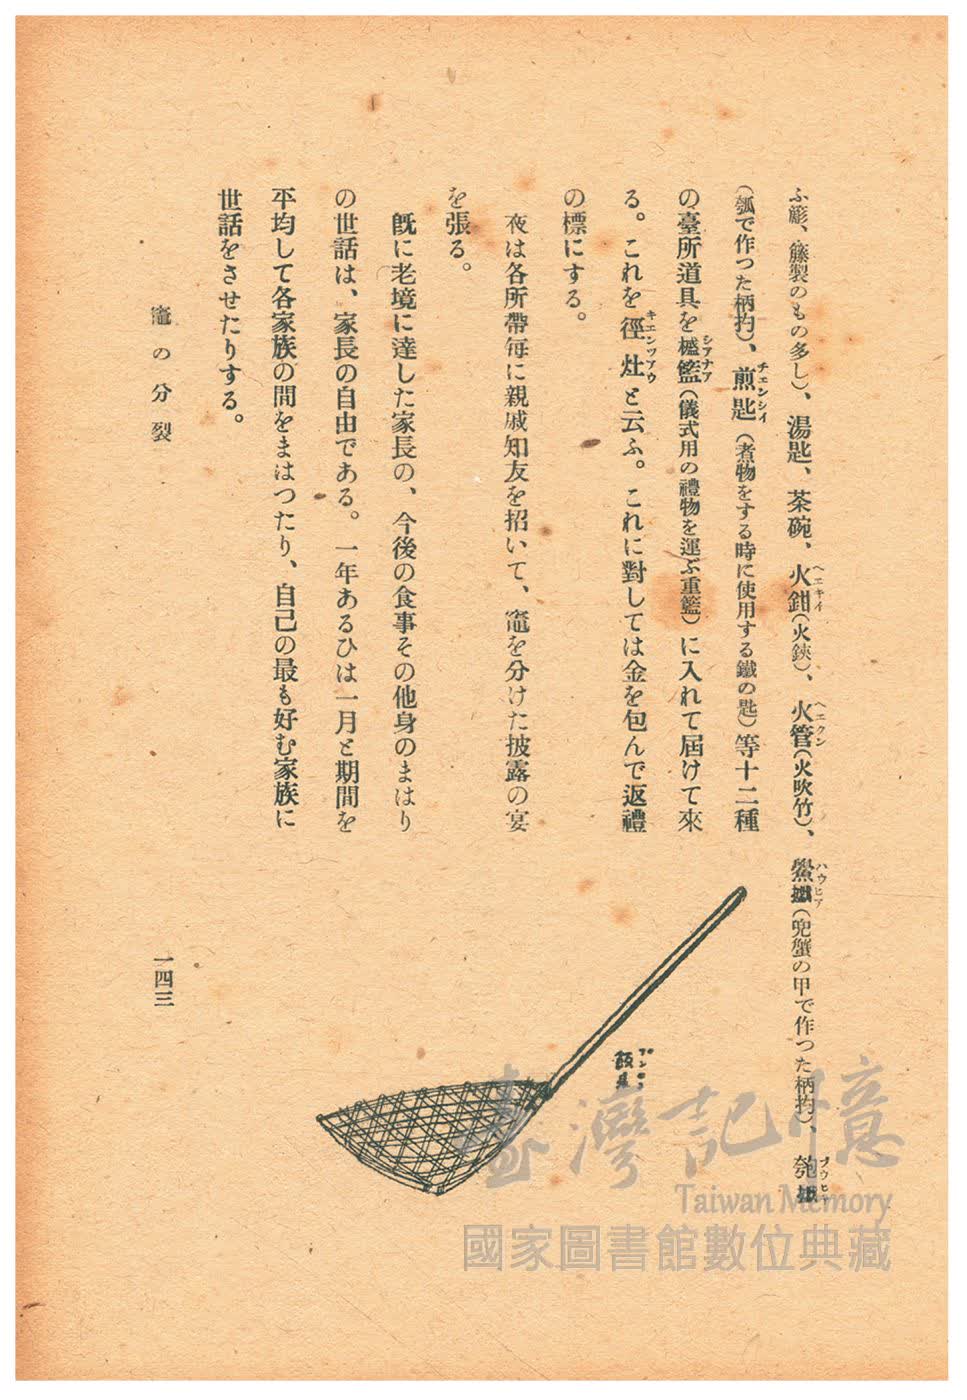 ふ籬、籐製のもの多し）、湯匙、茶碗、火鉗（火鋏）、火管（火吹竹）、鱟（兜蟹の甲で作つた柄杓）、匏
ヘエキイ
ヘエクン
ハウヒア
プウヒア
（瓠で作つた柄杓）、煎匙（煮物をする時に使用する鐵の匙）等十二種
チエンシイ
の臺所道具を㰖籃（儀式用の禮物を運ぶ重籃）に入れて屆けて來
シアナア
る。これを徑灶と云ふ。これに對しては金を包んで返禮
キエンツアウ
の標にする。
夜は各所帶毎に親戚知友を招いて、竈を分けた披露の宴
を張る。
既に老境に達した家長の、今後の食事その他身のまはり
の世話は、家長の自由である。一年あるひは一月と期間を
平均して各家族の間をまはつたり、自己の最も好む家族に
世話をさせたりする。
飯
竈の分裂
一四三
臺灣記憶
Taiwan Memory
國家圖書館數位典藏